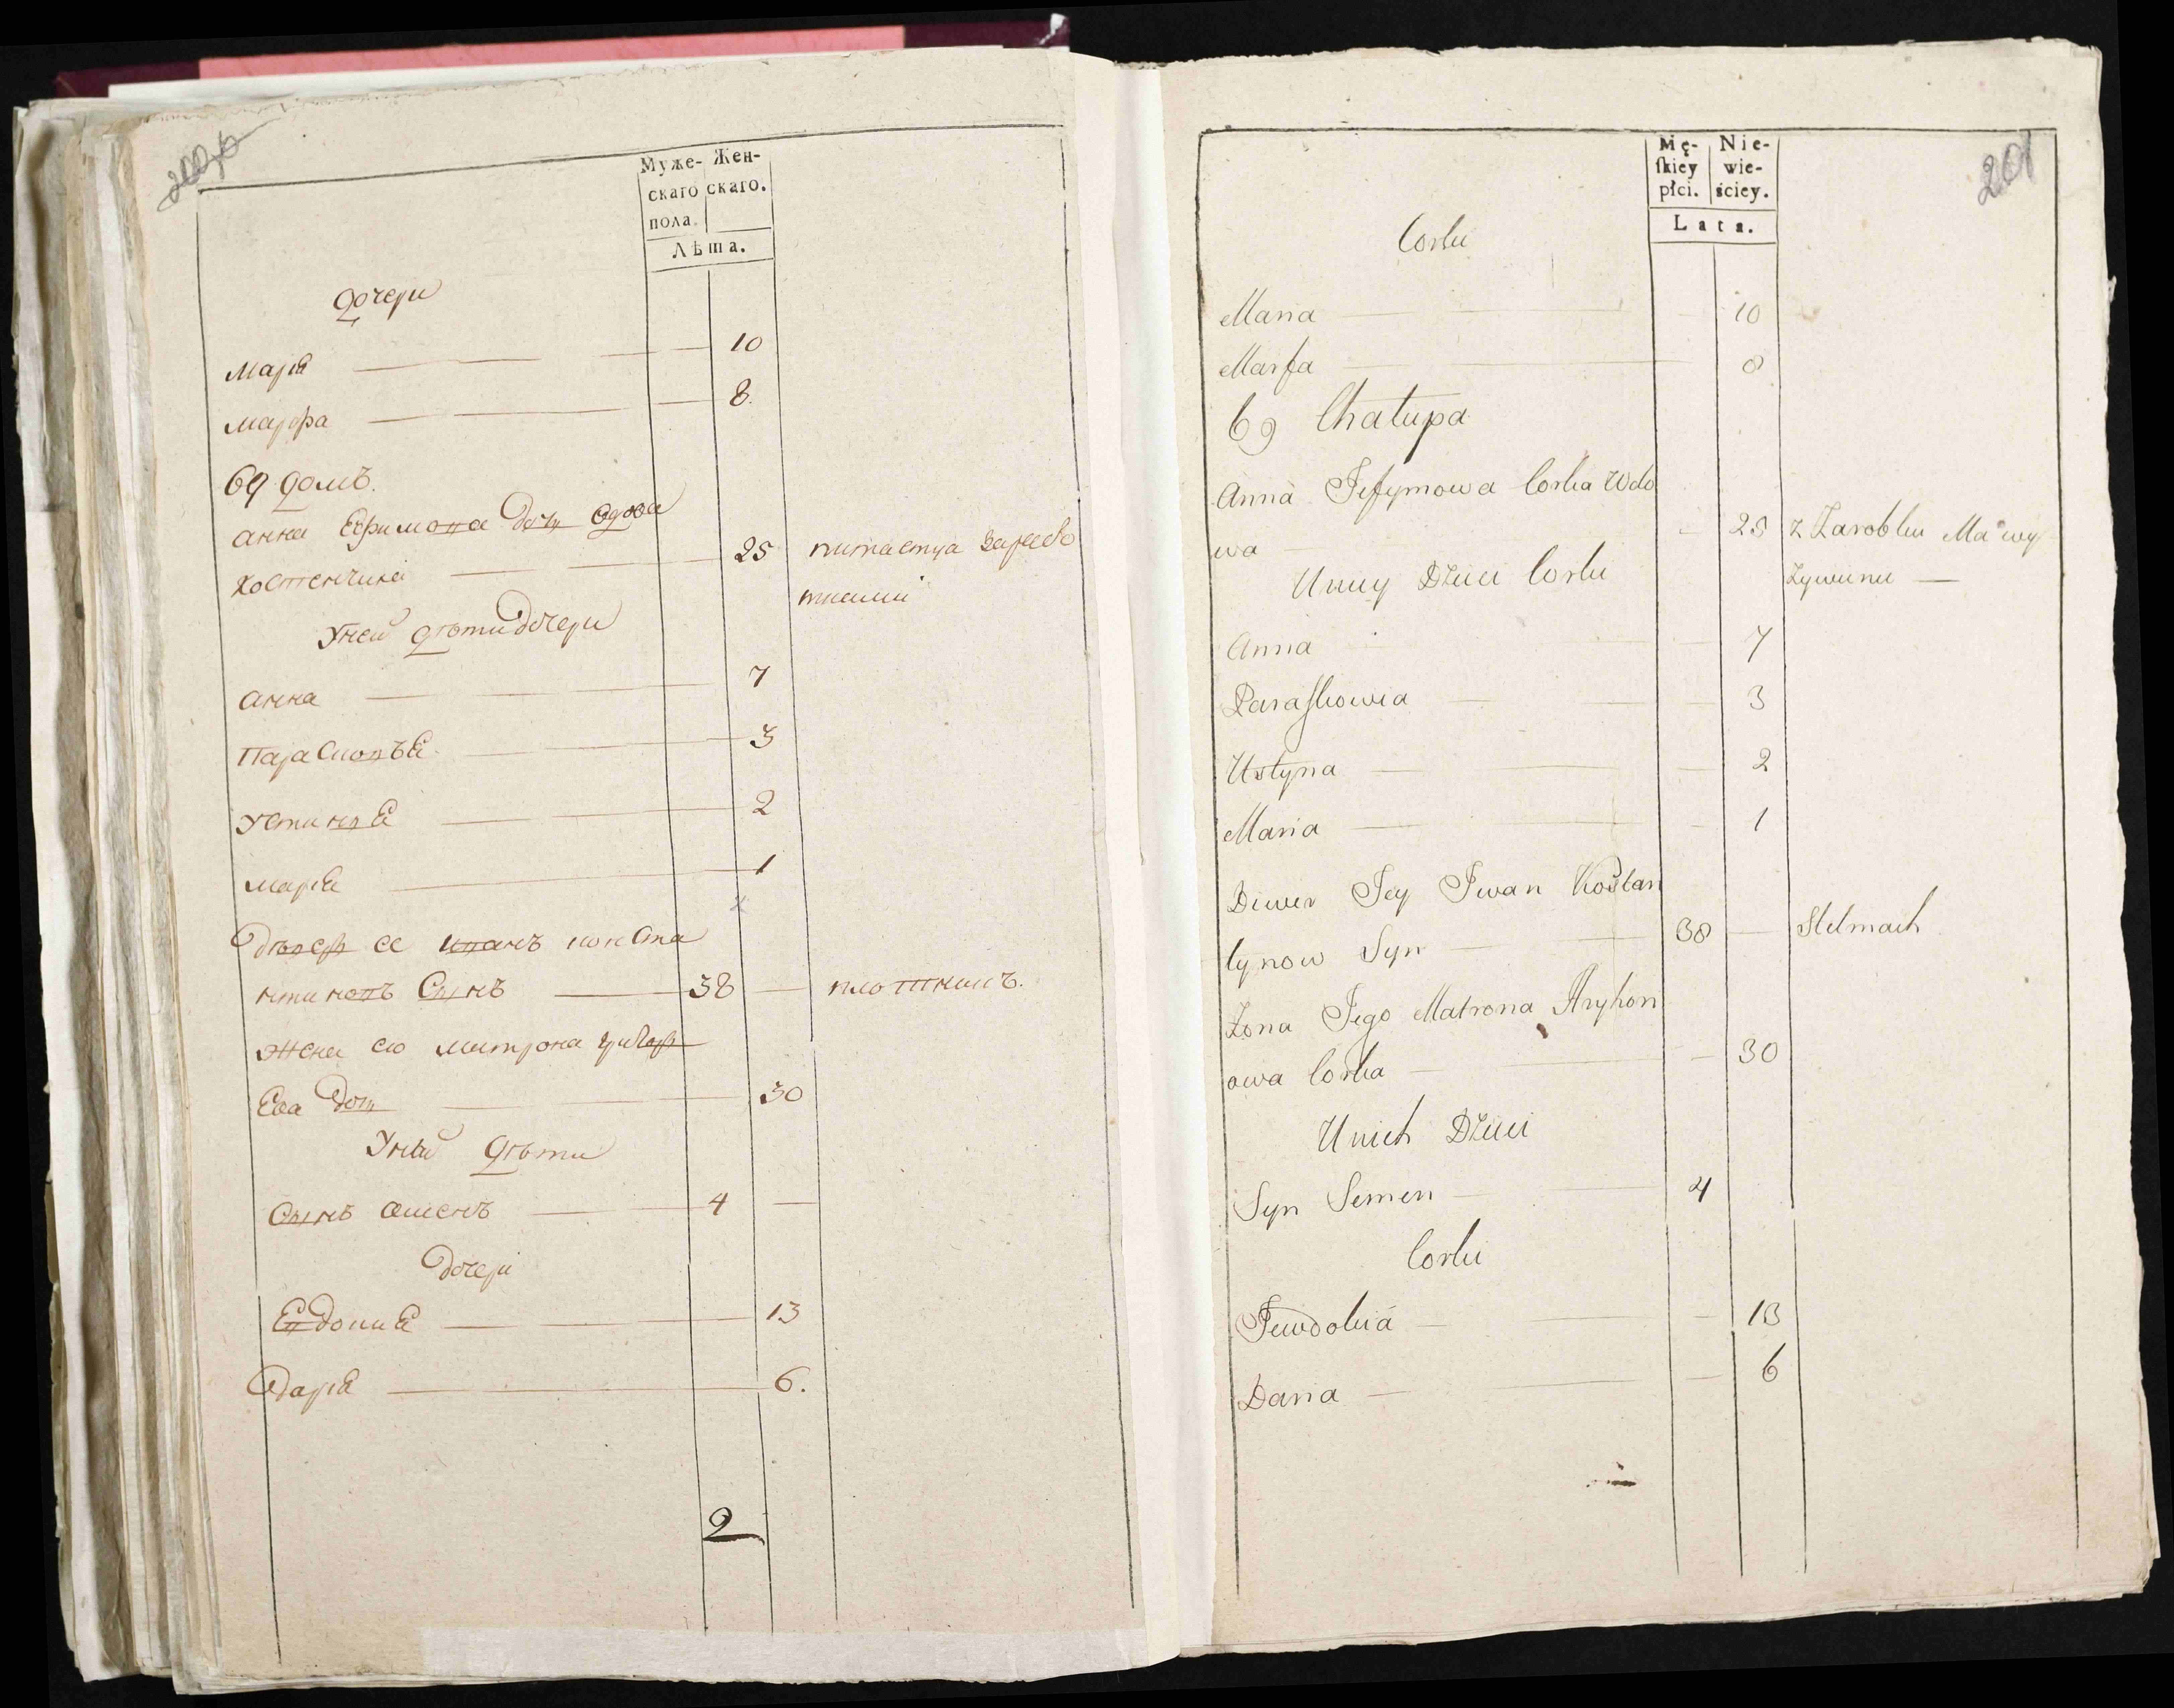 200об
Муже- Жен-
скаго скаго.
пола.
Лѣта.
Дочери
Марія 10
Марфа 8
69 домъ.
Анна Ефимова дочь вдова
Костенчиха 25 питается зарабо
тками
У ней дѣти дочери
Анна 7
Парасковья 3
Устинья 2
Марія 1
Дѣверь ее Иванъ конста
нтиновъ Сынъ 38 плотникъ.
Жена его Матрона григорь
Ева дочь 30
У ней дѣти
Сынъ Семенъ 4
Дочери
Евдокия 13
Дарія 6.
2
201
Mę- Nie-
skiey wie-
płci. ściey.
Lata.
Corki
Maria 10
Marfa 8
69 Chałupa
Anna Jefymowa Corka Wdo
wa 25 z Zarobku Ma wy
Uniey Dzieci Corki żywienie
Anna 7
Paraskowia 3
Ustyna 2
Maria 1
Diwer Jey Jwan Kostan
tynow Syn 38 Stelmach
Żona Jego Matrona Hryhor
owa Corka 30
Unich Dzieci
Syn Semen 4
Corki
Jewdokia 13
Daria 6